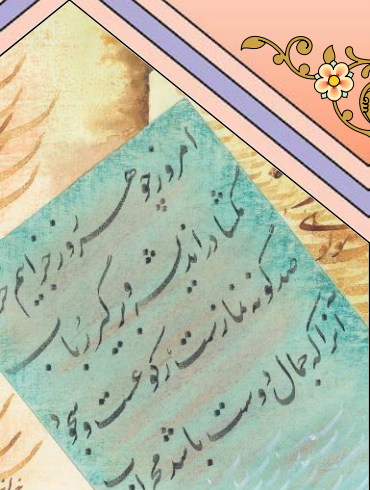 امروز چو هر روز خرابیم
مگشا در اندیشه و برگیر رباب
صد گونه نمازست رکوعست و سجود
آنرا که جمال دوست باشد محراب
مولوی